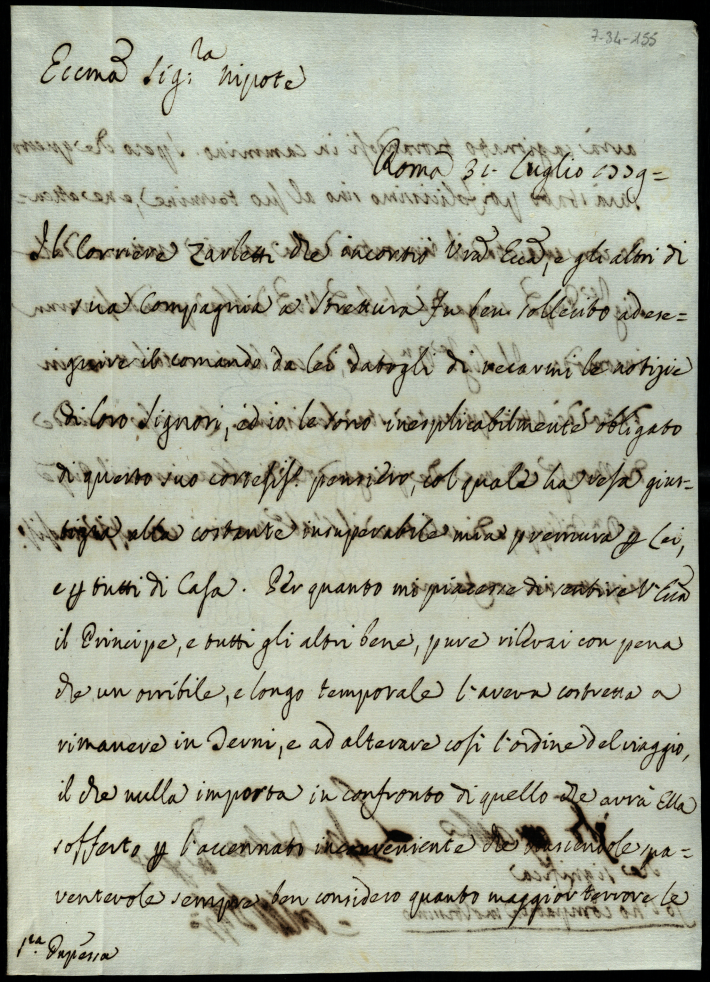 7-34-155
Eccma Sig:ra Nipote
Roma 31 Luglio 1779=
Il Corriere Zarletti che incontrò Vra Ecca, e gli altri di
sua Compagnia a Strettura fu ben sollecito ad ese=
guire il comando da Lei datogli di recarmi le notizie
di loro Signori, ed io le sono inesplicabilmente obligato
di questo suo cortesiss: pensiero, col quale ha resa gius=
tizia alla costante insuperabile mia premura p Lei,
e p tutti di Casa. Per quanto mi piacesse di sentire V Ecca
il Principe, e tutti gli altri bene, pure rilevai con pena
che un orribile, e longo temporale l'aveva costretta a
rimanere in Terni, e ad alterare così l'ordine del viaggio,
il che nulla importa in confronto di quello che avrà Ella
sofferto p l'accennato inconveniente che riuscendole spa=
ventevole sempre ben considero quanto maggior terrore le